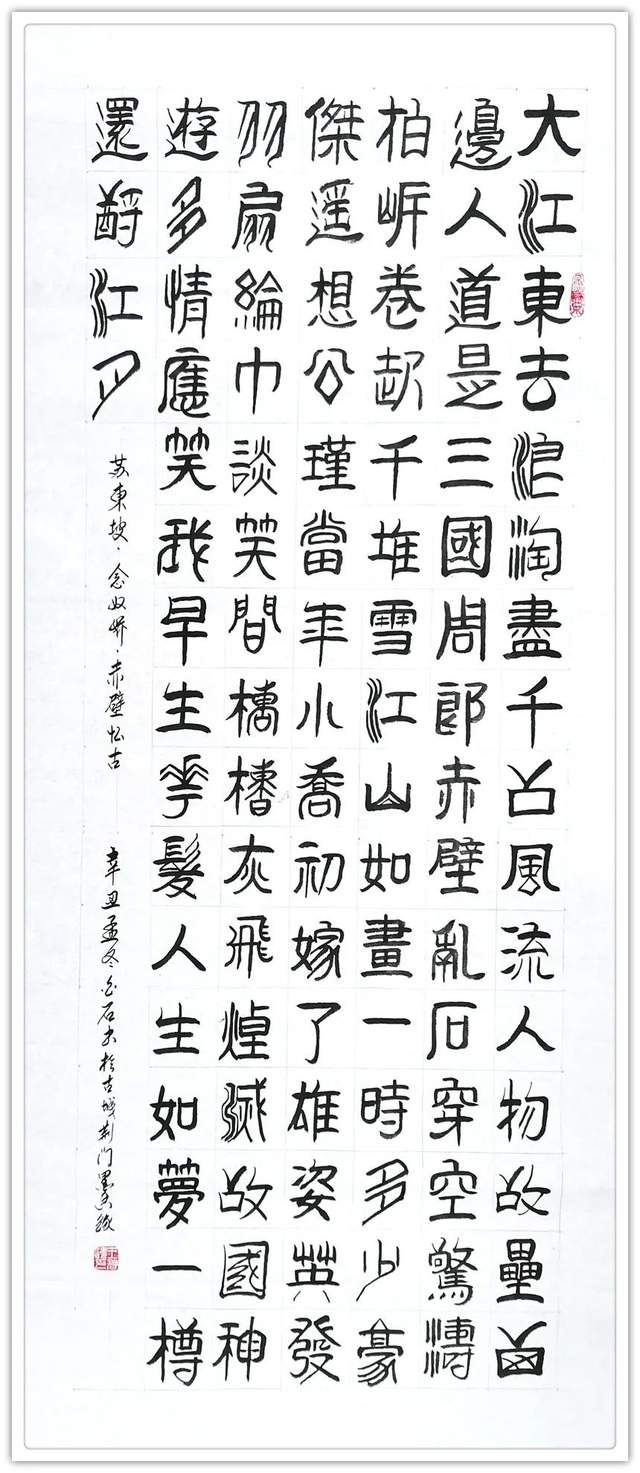 大江東去浪淘盡千古風流人物故壘西
邊人道是三國周郎赤壁亂石穿空驚濤
柏岸卷起千堆雪江山如畫一時多少豪
傑遥想公瑾當年小喬初嫁了雄姿英發
羽扇綸巾談笑間檣櫓灰飛煙滅故國神
遊多情應笑我早生華髮人生如夢一樽
還酹江月
苏東坡·念奴娇·赤壁怀古
辛丑孟冬石书於古城荆门墨